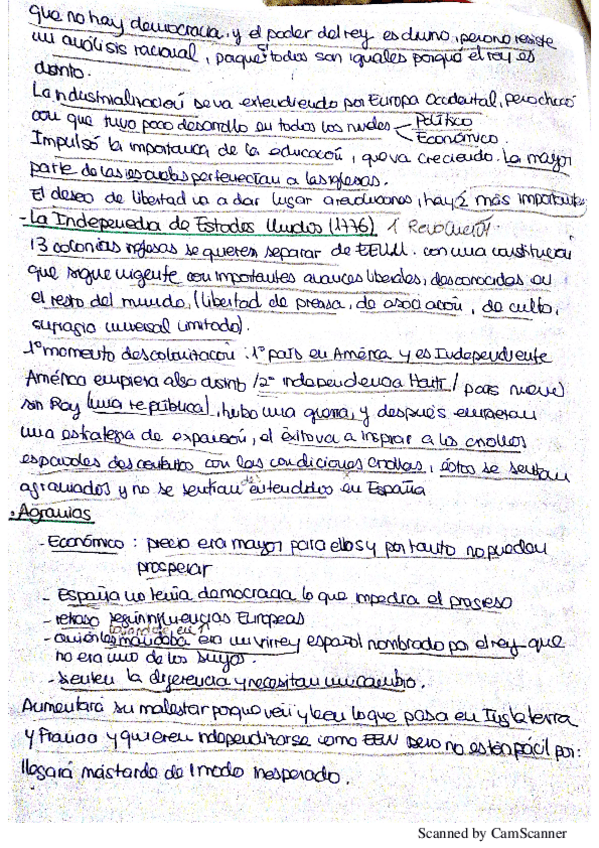 que no hay democracia, y el poder del rey es divino, pero no resiste
un análisis racional, porque si todos son iguales porqué el rey es
distinto.
La industrialización se va extendiendo por Europa Occidental, pero chocó
con que tuvo poco desarrollo en todos los niveles Político
Económico.
Impulsó la importancia de la educación, que va creciendo. La mayor
parte de las escuelas pertenecían a las iglesias.
El deseo de libertad va a dar lugar a revoluciones, hay 2 más importantes
- La Independencia de Estados Unidos (1776) 1 Revolución.
13 colonias inglesas se quieren separar de EEUU. con una constitución
que sigue vigente con importantes avances liberales, desconocidos en
el resto del mundo, (libertad de prensa, de asociación, de culto,
sufragio universal limitado).
1º momento descolonización: 1º país en América y es Independiente
América empieza algo distinto /2º independencia Haití / país nuevo
sin Rey (una república), hubo una guerra, y después empiezan
una estrategia de expansión, el éxito va a inspirar a los criollos
españoles descontentos con las condiciones criollas, éstos se sentían
agraviados y no se sentían entendidos en España
· Agravios
- Económico: precio era mayor para ellos y por tanto no pueden
prosperar
- España no tenía democracia lo que impedía el progreso
- retraso según influencias Europeas
- quién les mandaba era un virrey español nombrado por el rey - que
no era uno de los suyos.
- sienten la diferencia y necesitan un cambio.
Aumentará su malestar porque ven y leen lo que pasa en Inglaterra
y Francia y quieren independizarse como EEUU pero no es tan fácil por:
llegará más tarde de 1 modo inesperado.
Scanned by CamScanner